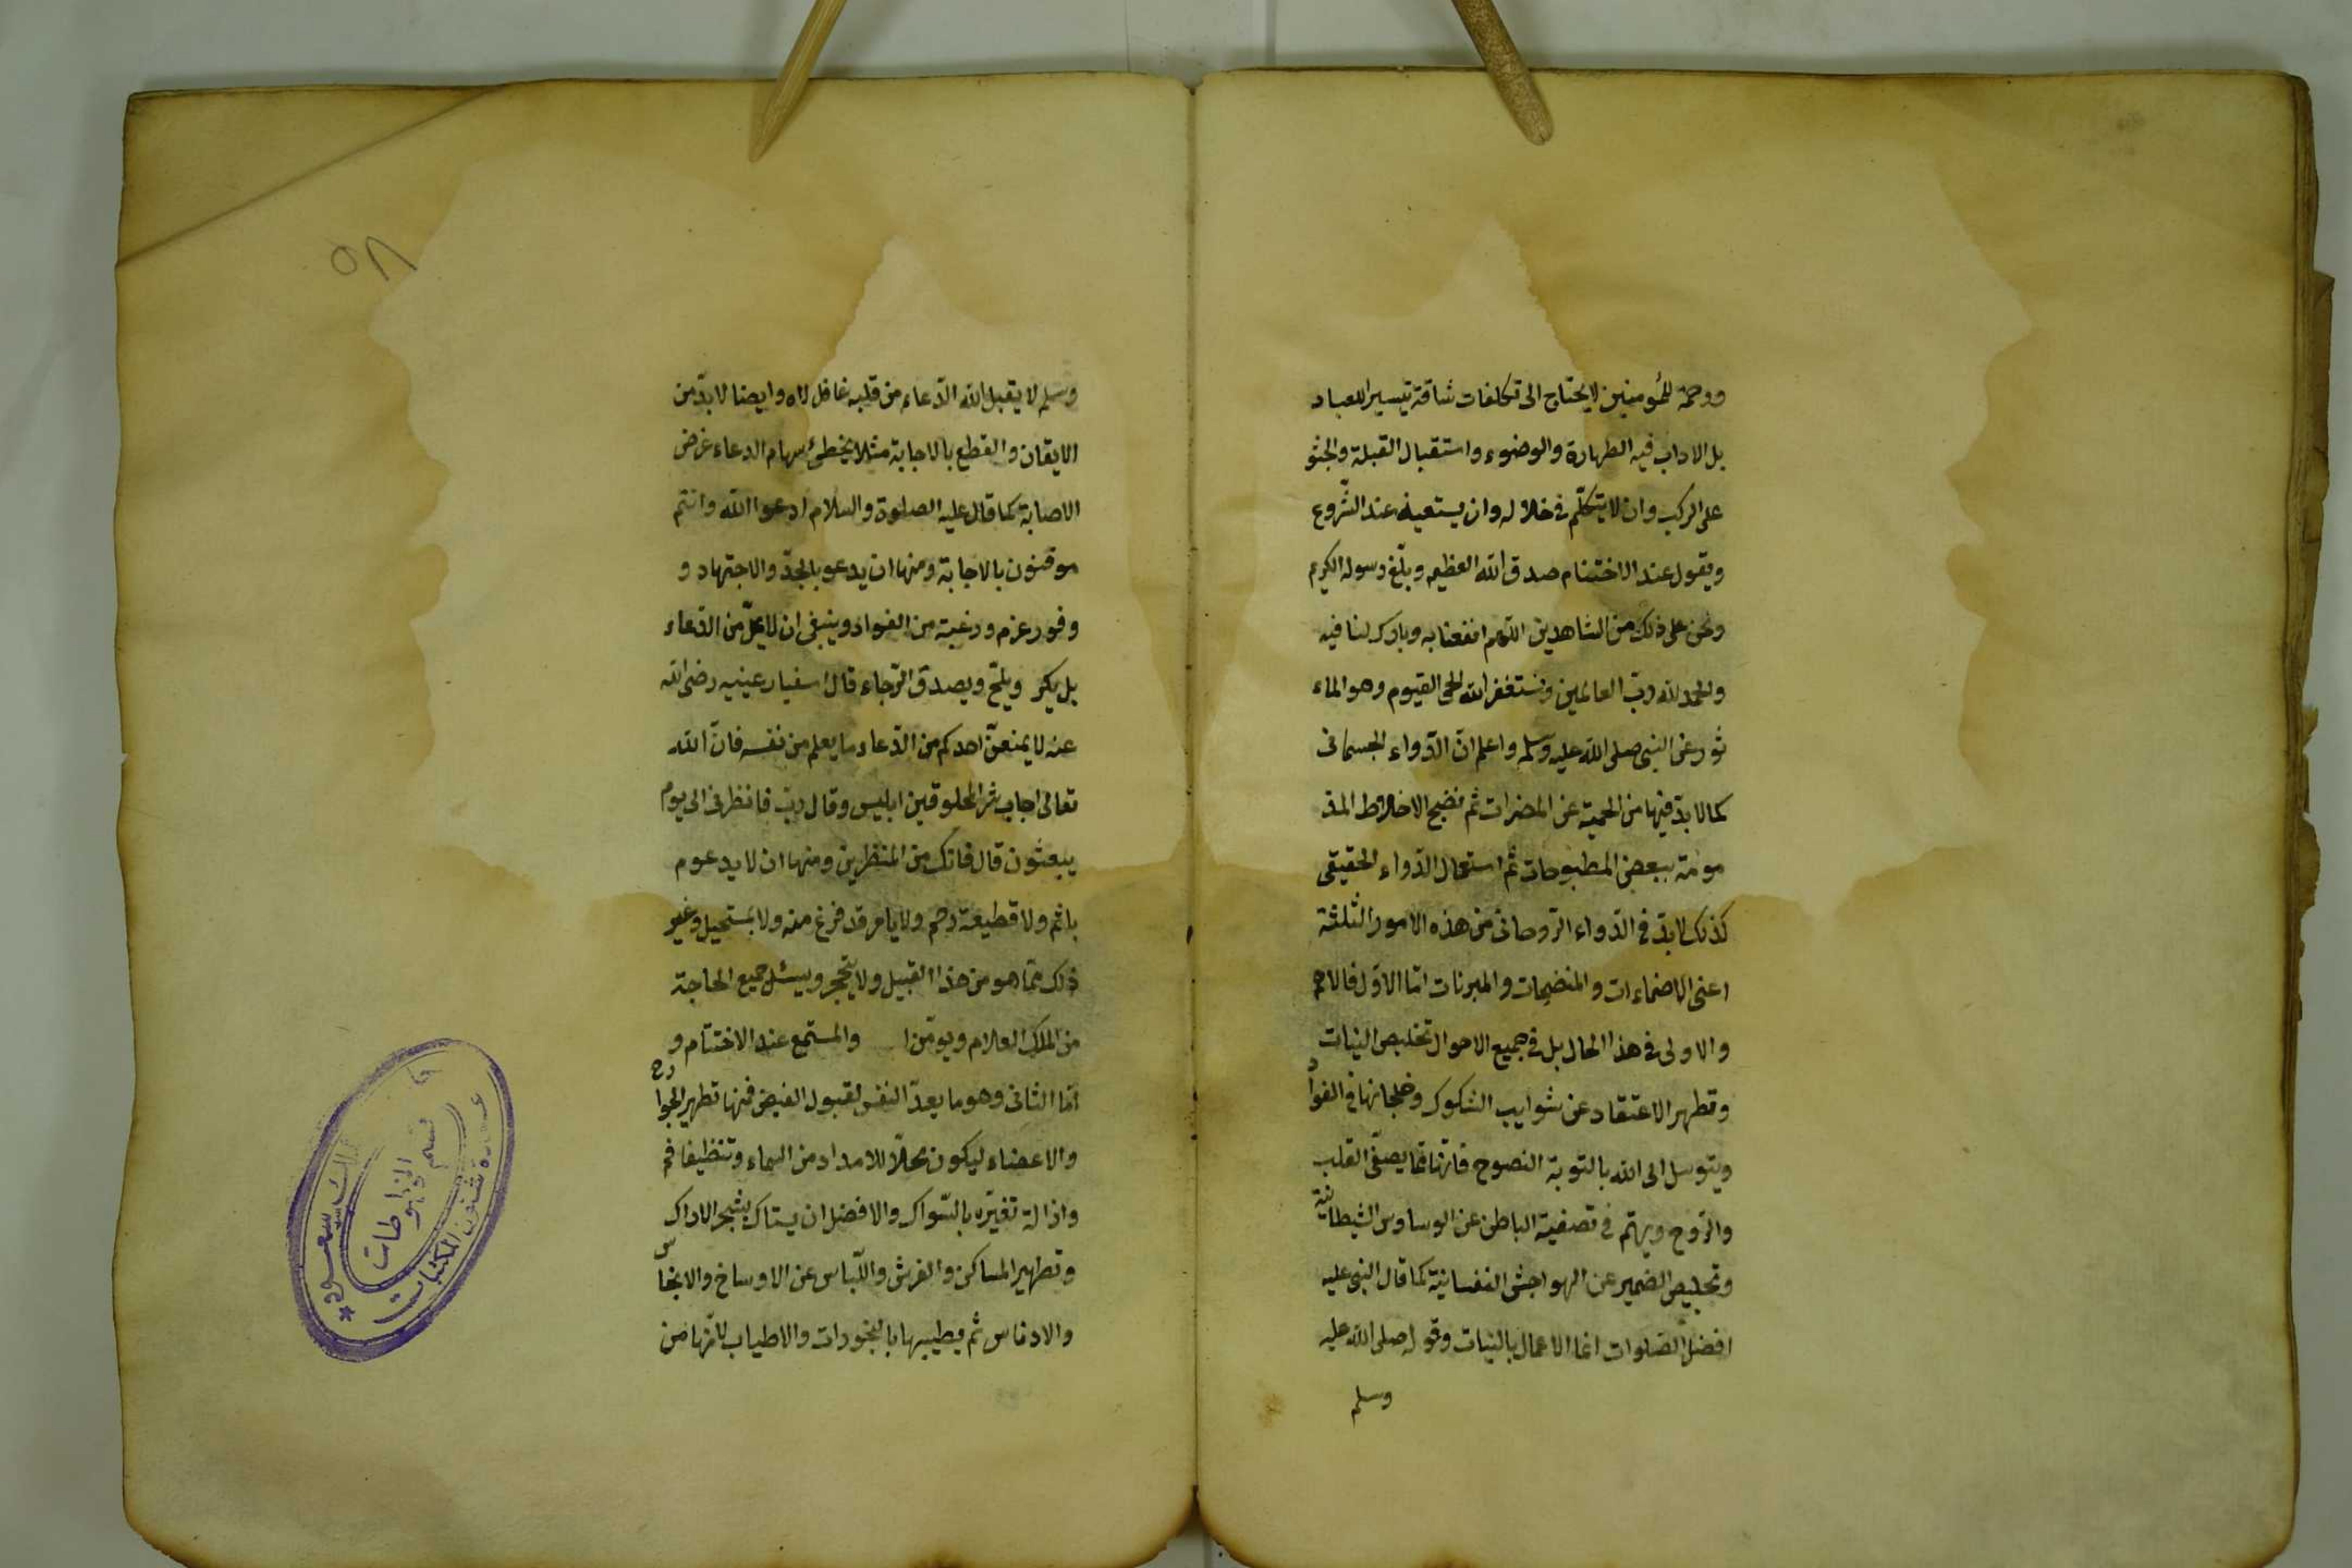 ورحمة للمؤمنين لايحتاج الى تكلفات شاقة تيسيرا للعباد
بل الاداب فيه الطهارة والوضوء واستقبال القبلة والجثو
على الركب وان لا يتكلّم في خلاله وان يستعيذ عند الشّروع
ويقول عند الاختتام صدق الله العظيم وبلّغ رسوله الكريم
ونحن على ذلك من الشاهدين اللهم انفعنا به وبارك لنا فيه
والحمد لله ربّ العالمين ونستغفر الله الحى القيوم وهو الماء
ثور عن النبى صلى الله عليه وسلم واعلم انّ الدّواء الجسمانى
كما لابدّ فيها من الحمية عن المضرات ثم نضيج الاخلاط المذ
مومة ببعض المطبوخات ثم استعمال الدّواء الحقيقى
كذلك لابدّ في الدّواء الرّوحانى من هذه الامور الثلثة
اعنى الاحتماءات والمنضجات والمبرئات امّا الاوّل فالاهم
والاولى في هذا الحال بل في جميع الاحوال تخليص النيات
وتطهير الاعتقاد عن شوايب الشكوك وخلجانها في الفواد
ويتوسل الى الله بالتوبة النصوح فانّها ممّا يصفّى القلب
والرّوح ويهتم في تصفية الباطن عن الوساوس الشيطانية
وتخليص الضمير عن الهواجش النفسانية كما قال النبى عليه
افضل الصّلوات انما الاعمال بالنيات وقوله صلى الله عليه
وسلم
٥٨
وسلم لا يقبل الله الدّعاء من قلبه غافل لاه وايضا لابدّ من
الايقان والقطع بالاجابة مثلا يخطئ سهام الدعاء غرض
الاصابة كما قال عليه الصلوة والسلام ادعوا الله وانتم
موقنون بالاجابة ومنها ان يدعو بالجدّ والاجتهاد و
وفور عزم ورغبة من الفواد وينبغى ان لا يملّ من الدّعاء
بل يكرر ويلحّ ويصدق الرّجاء قال سفيان عينيه رضى الله
عنه لا يمنعنّ احدكم من الدّعاء ما يعلم من نفسه فانّ الله
تعالى اجاب شر المخلوقين ابليس وقال ربّ فانظرنى الى يوم
يبعثون قال فانك من المنظرين ومنها ان لا يدعوم
باثم ولا قطيعة رحم ولا بامر قد فرغ منه ولا بمستحيل وغير
ذلك ممّا هو من هذا القبيل ولا يتحجر ويسئل جميع الحاجة
من الملك العلام ويؤمّن ا والمستمع عند الاختتام و
امّا الثانى وهو ما يعدّ النفس لقبول الفيض فمنها تطهير الجوارح
والاعضاء ليكون محلّا للامداد من السماء وتنظيفا فم
وازالة تغيّره بالسّواك والافضل ان يستاك بشجر الاراك
وتطهير المساكن والفرش واللّباس عن الاوساخ والانجاس
والادناس ثم يطيبها بالبخورات والاطياب لانّها من
عمادة شئون المكتبات
قسم المخطوطات
الملك سعود